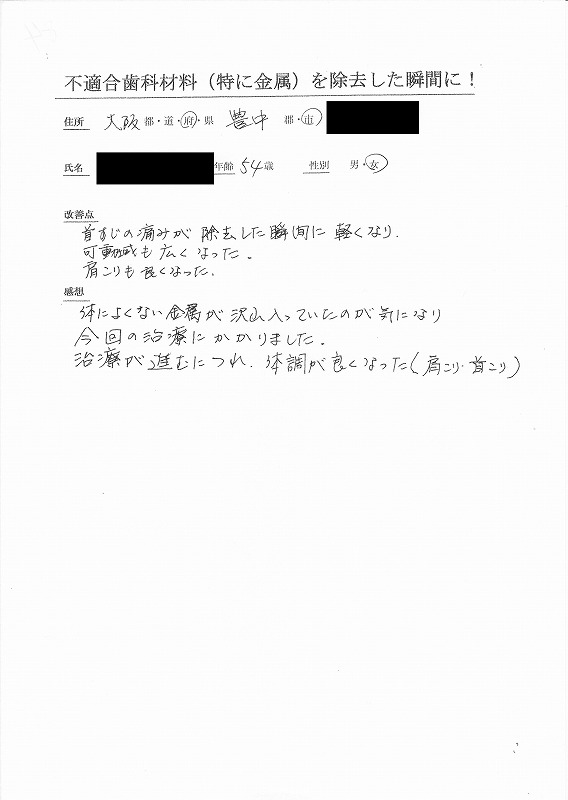 不適合歯科材料（特に金属）を除去した瞬間に！
住所 大阪 都・道・府・県 豊中 郡・市
氏名 年齢 54歳 性別 男・女
改善点
首すじの痛みが除去した瞬間に軽くなり、
可動域も広くなった。
肩こりも良くなった。
感想
体によくない金属が沢山入っていたのが気になり
今回の治療にかかりました。
治療が進むにつれ、体調が良くなった（肩こり・首こり）